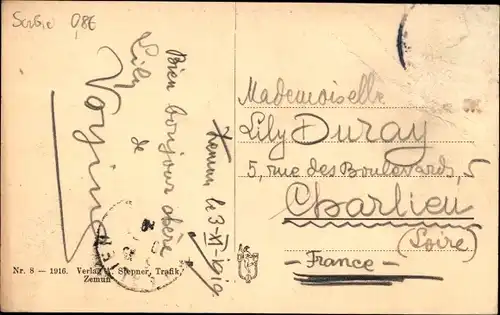 Serbie 0,8€
Zemun le 3-XI-1919
Bien bonjour chère
Lily
de
Mademoiselle
Lily Duray
5, rue des Boulevards, 5
Charlieu
(Loire)
- France -
Nr. 8 — 1916. Verlag A. Stepner, Trafik,
Zemun